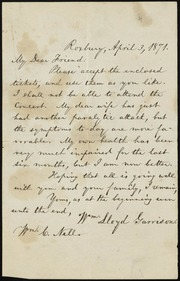 Roxbury, April 3, 1871.
My Dear Friend:
Please accept the enclosed
tickets, and use them as you like.
I shall not be able to attend the
Concert. My dear wife has just
had another paralytic attack, but
the symptoms to-day are more fa-
vorable. My own health has been
very much impaired for the last
six months, but I am now better.
Hoping that all is going well
with you and your family, I remain,
Yours, as at the beginning even
unto the end,
Wm. Lloyd Garrison.
Wm. C. Nell.